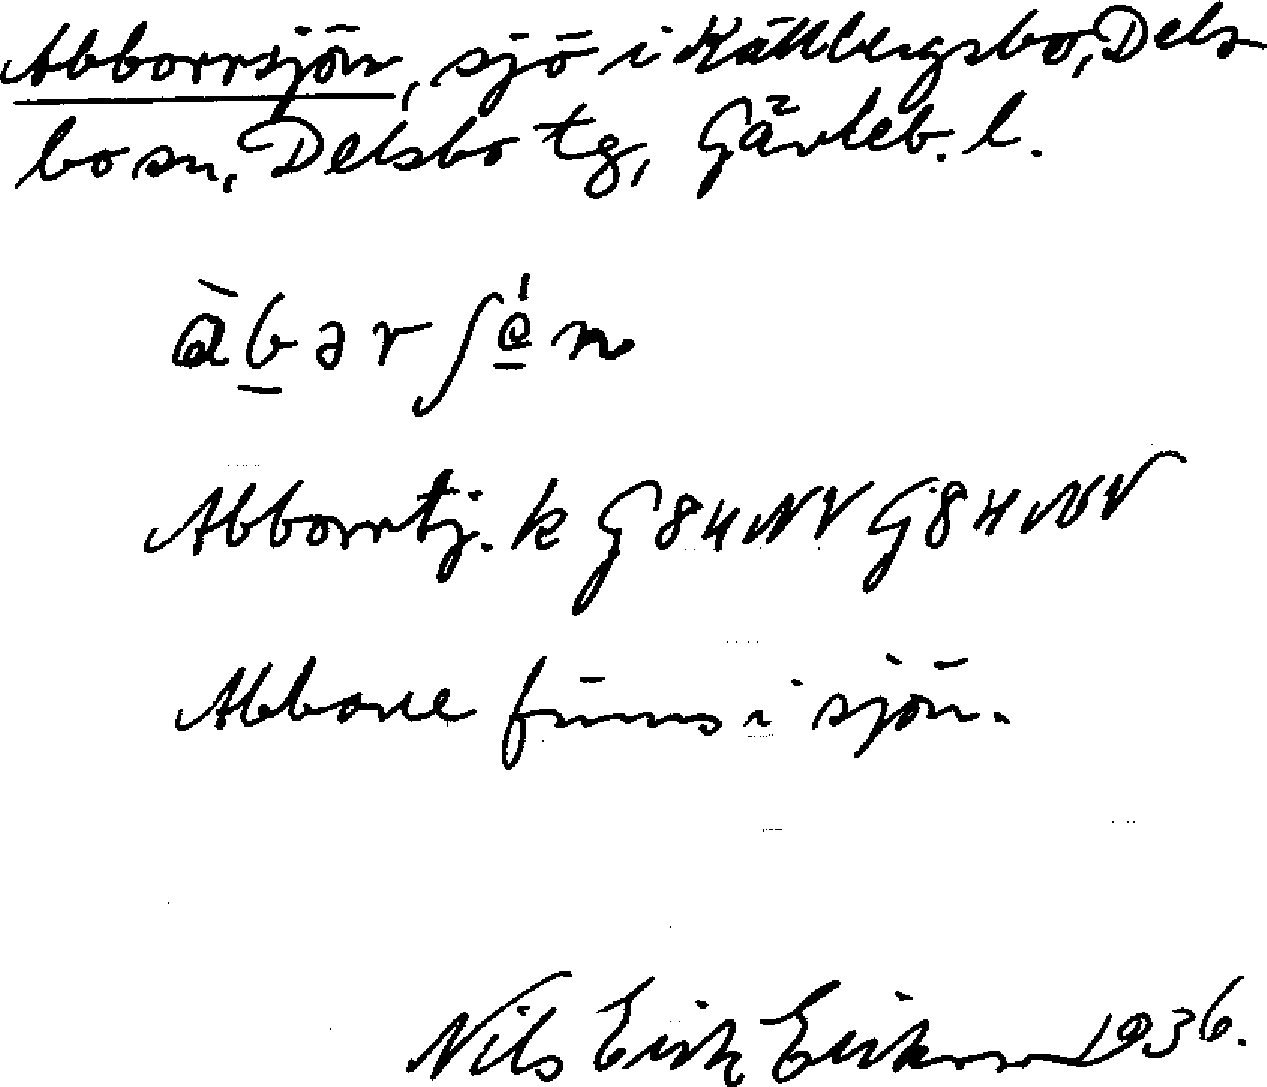 Abborrsjön, sjö i Källbergsbo, Dels-
bo sn, Delsbo tg, Gävleb. l.
Abborrtj. k G 84 NV G 84 NV
Abborre finns i sjön.
Nils Erik Erikson 1936.